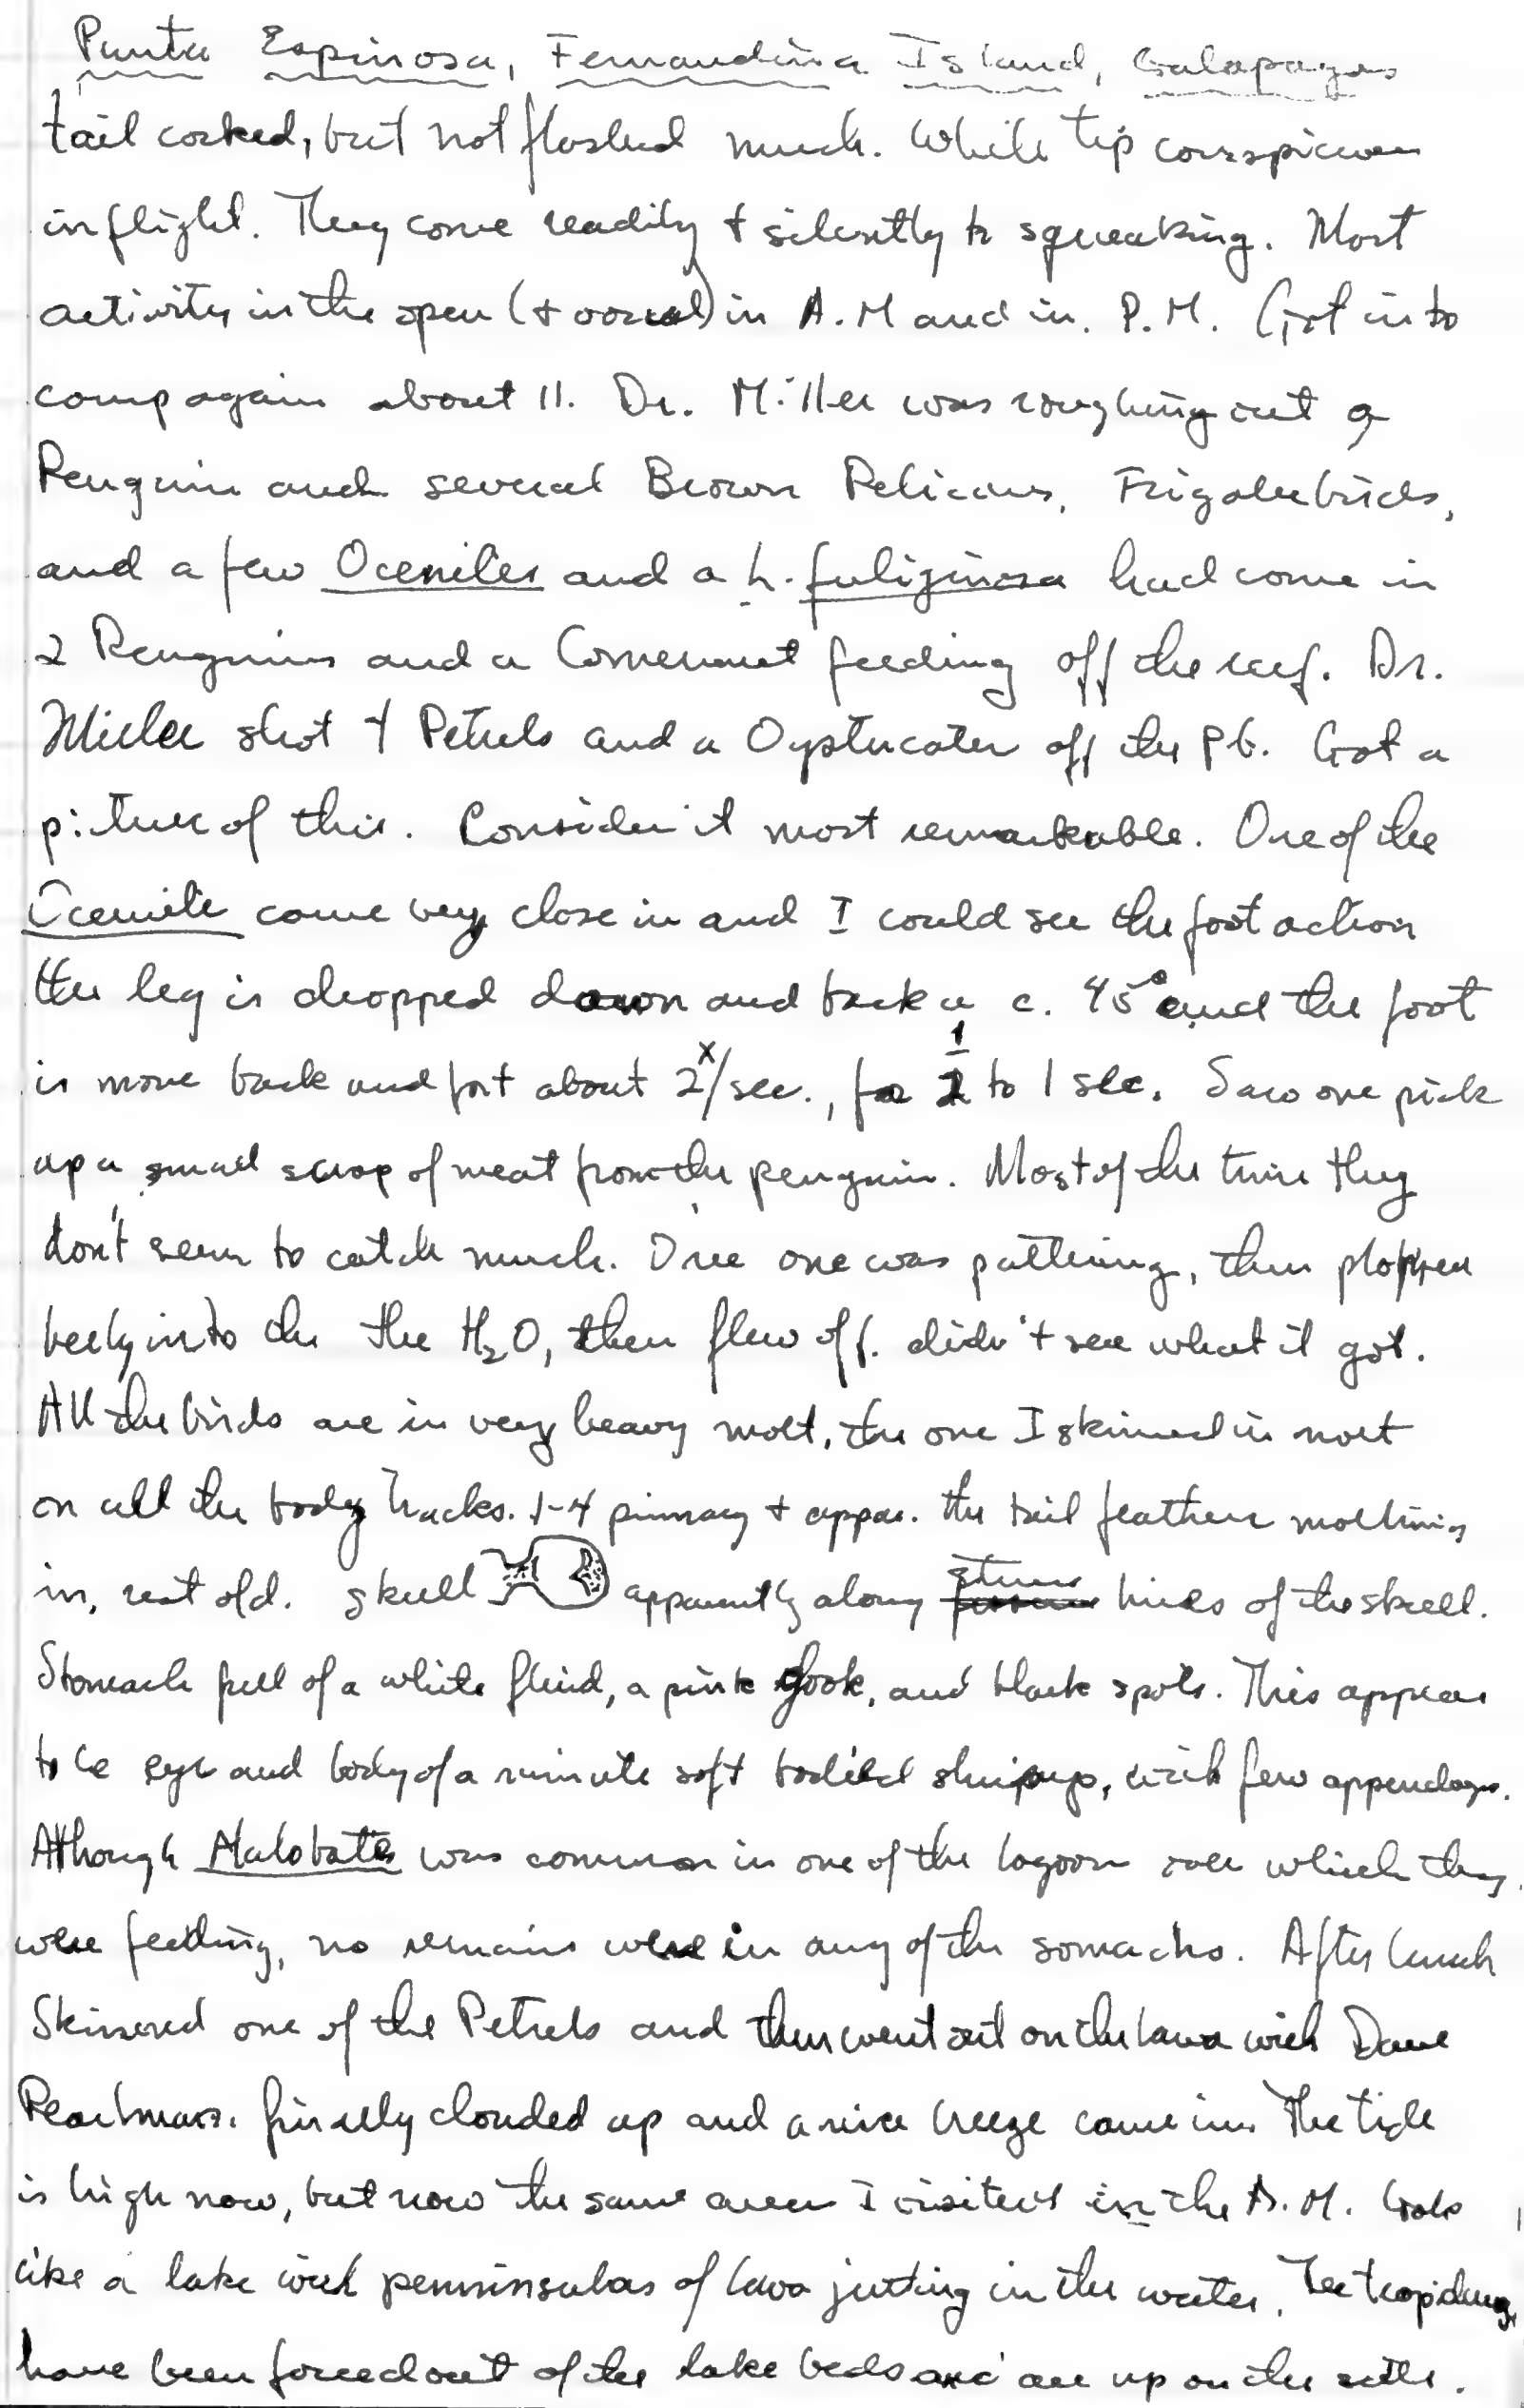 Punta Espinosa, Fernandina Island, Galapagos
tail cocked, but not flashed much. White tip conspicuous
in flight. They come readily + silently to squeaking. Most
activity in the open (+ vocal) in A.M and in P.M. Got into
camp again about 11. Dr. Miller was roughing out a
Penguin and several Brown Pelicans, Frigatebirds,
and a few Oceanites and a L. fuliginosa had come in
2 Penguins and a Cormorant feeding off the reef. Dr.
Miller shot 4 Petrels and a Oystercater off the Pt. Got a
picture of this. Consider it most remarkable. One of the
Oceanite came very close in and I could see the foot action
the leg is dropped down and back a c. 45° and the foot
is move back and fort about 2x/sec., for 1/2 to 1 sec. Saw one pick
up a small scrap of meat from the penguin. Most of the time they
don't seem to catch much. Once one was pattering, then plopped
belly into the the H2O, then flew off. didn't see what it got.
All the birds are in very heavy molt, the one I skinned is molt
on all the body tracks. 1-4 primary + appar. the tail feathers molting
in, rest old. skull apparently along lines of the skull.
Stomach full of a white fluid, a pink gook, and black spots. This appears
to be eye and body of a minute soft bodied shrimp, with few appendages.
Although Halobates was common in one of the lagoon over which they
were feeding, no remains were in any of the somachs. After lunch
Skinned one of the Petrels and then went out on the lava with Dave
finally clouded up and a nice breeze came in. The tide
is high now, but now the same area I visited in the A.M. looks
like a lake with penninsulas of lava jutting in the water. The tropidurus
have been forced out of the lake beds and are up on the